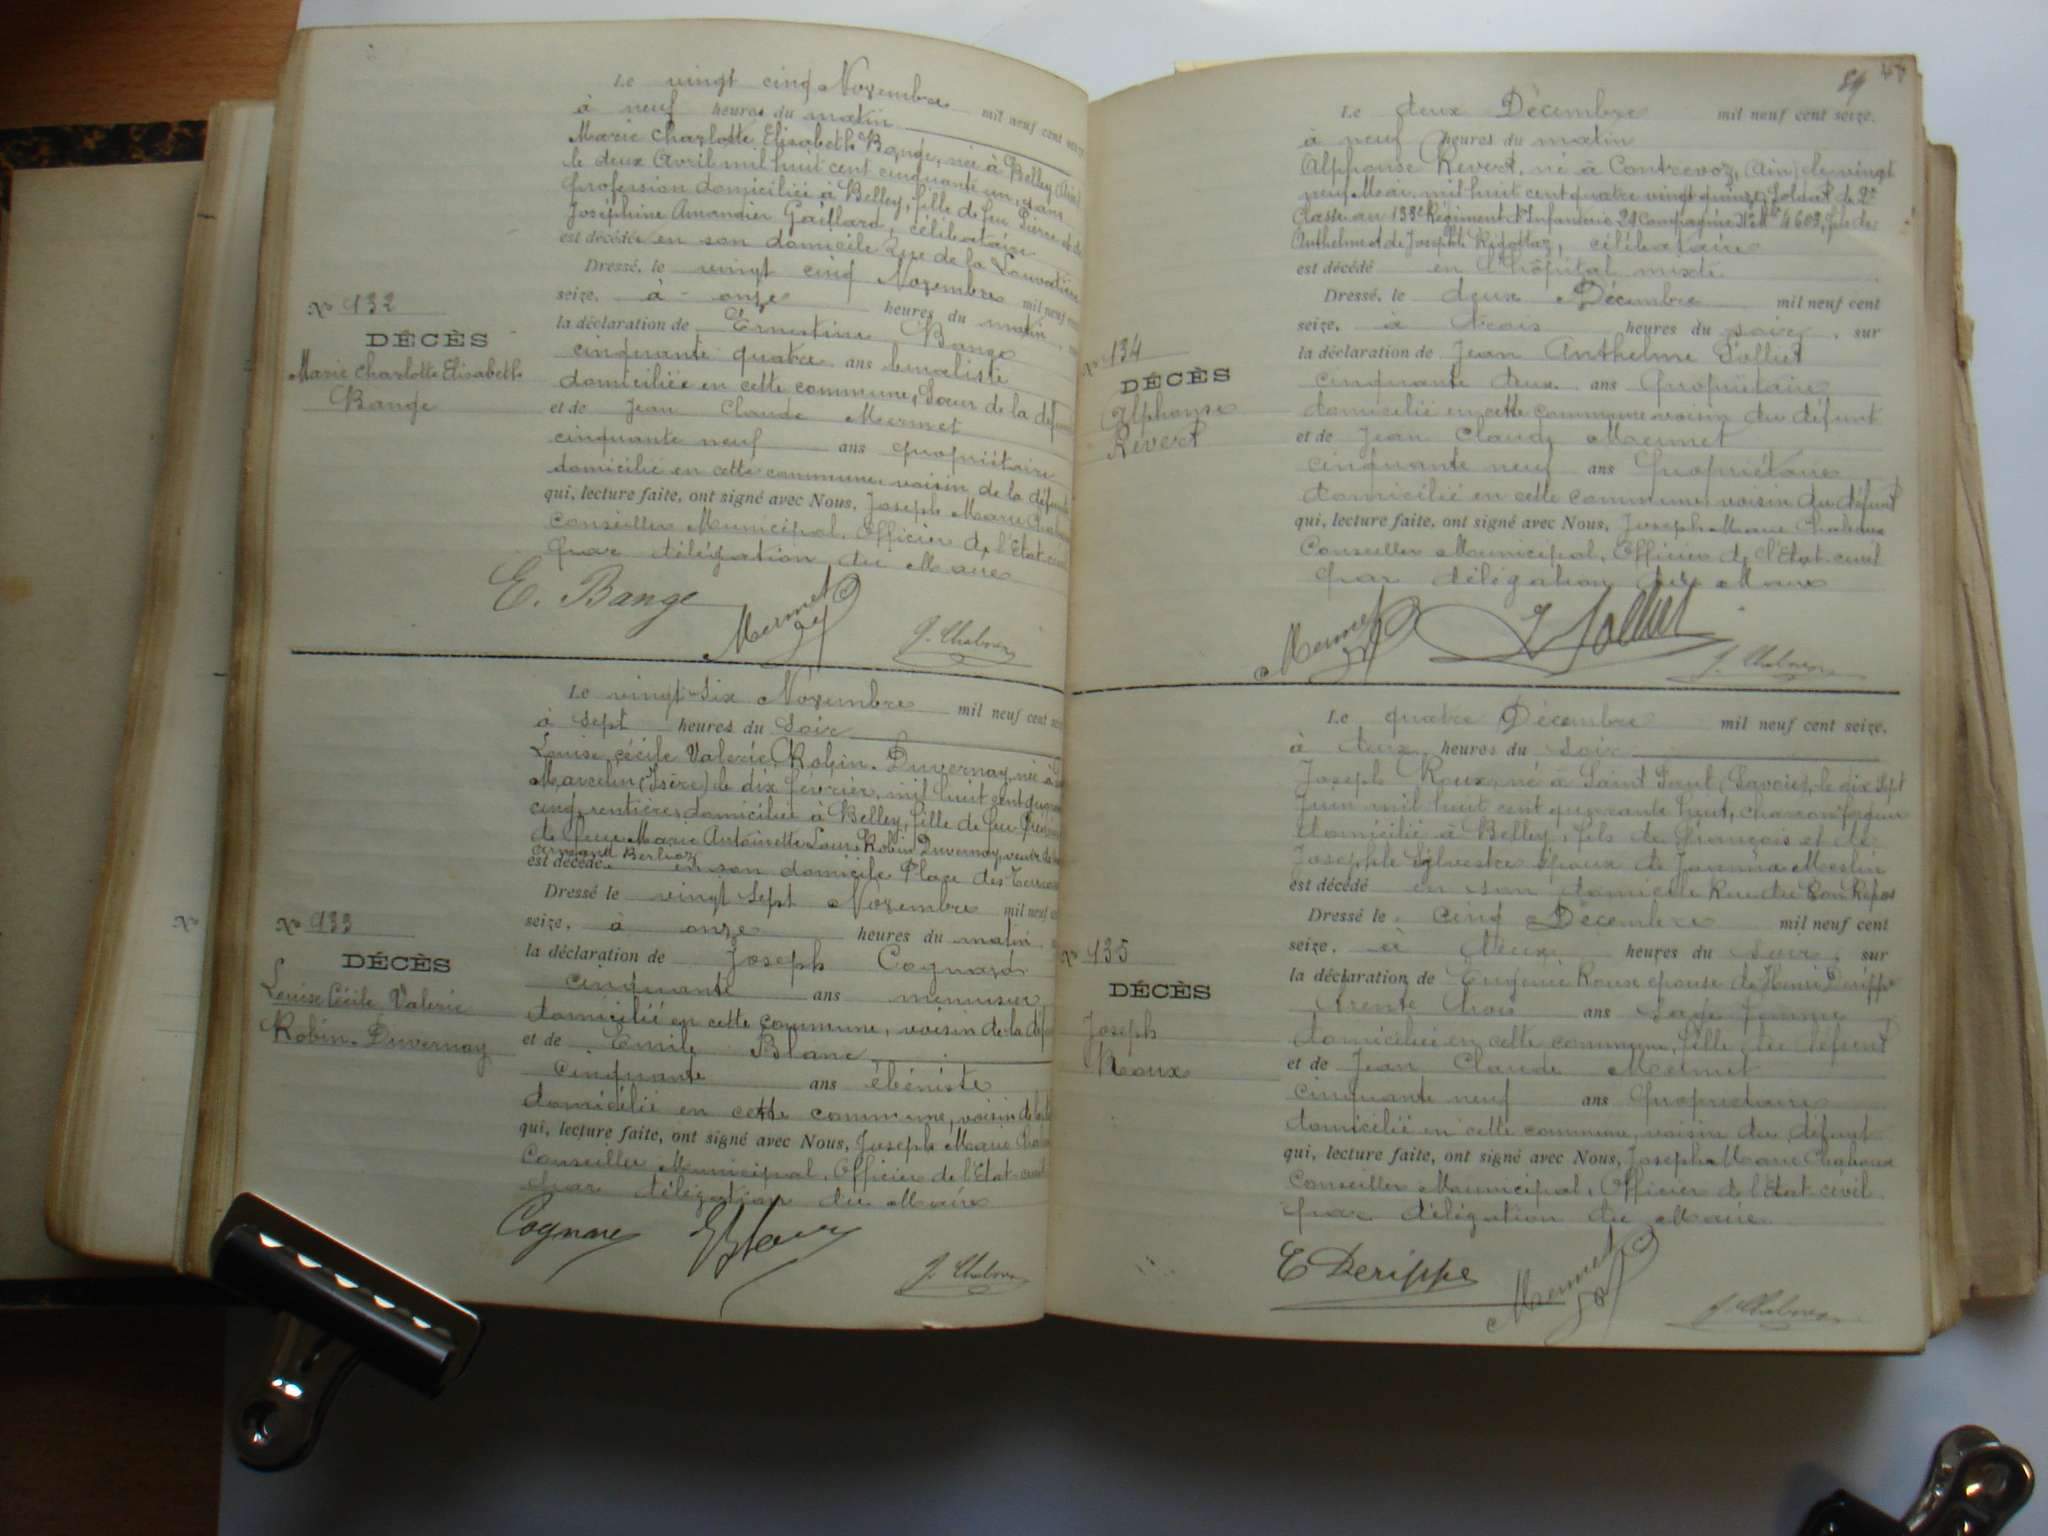 Le vingt cinq Novembre mil neuf cent seize
à neuf heures du matin
Marie Charlotte Elisabeth Bange, née à Belley (Ain)
le deux Avril mil huit cent cinquante un, sans
profession domiciliée à Belley, fille de feu Pierre et de
Joséphine Amandier Gaillard, célibataire
est décédée en son domicile Rue de la
Dressé, le vingt cinq Novembre mil neuf cent
seize, à onze heures du matin
N° 132
DÉCÈS
Marie Charlotte Elisabeth
Bange
la déclaration de Ernestine Bange
cinquante quatre ans
domiciliée en cette commune, Soeur de la défunte
et de Jean Claude Mermet
cinquante neuf ans propriétaire
domicilié en cette commune, voisin de la défunte
qui, lecture faite, ont signé avec Nous, Joseph Marie
Conseiller Municipal, Officier de l'Etat-civil
par délégation du Maire
E. Bange
Mermet
J. Chaboux
Le vingt-six Novembre mil neuf cent seize
à sept heures du soir
Louise Cécile Valérie Robin-Duvernay, née à
Marcelin (Isère) le dix février, mil huit cent
cinq, rentière, domiciliée à Belley, fille de feu
de feue Marie Antoinette Robin Duvernay, veuve de
Berlioz
est décédée en son domicile Place des Terreaux
Dressé le vingt sept Novembre mil neuf cent
N° 133
seize, à onze heures du matin
DÉCÈS
Louise Cécile Valérie
Robin-Duvernay
la déclaration de Joseph Cognard
cinquante ans menuisier
domicilié en cette commune, voisin de la
et de Emile Blanc
cinquante ans ébéniste
domicilié en cette commune, voisin de la
qui, lecture faite, ont signé avec Nous, Joseph Marie
Conseiller Municipal, Officier de l'Etat-civil
par délégation du Maire
Cognard
E Blanc
J. Chaboux
89
Le deux Décembre mil neuf cent seize.
à neuf heures du matin
Alphonse Revert, né à Contrevoz, (Ain) le vingt
neuf Mai, mil huit cent quatre vingt quinze, Soldat de 2e
Classe au 133e Régiment d'Infanterie 29 Compagnie 4603, fils de
Anthelme et de Josephte Rigottaz, célibataire
est décédé en l'hôpital mixte
Dressé, le deux Décembre mil neuf cent
seize, à trois heures du soir, sur
N° 134
DÉCÈS
Alphonse
Revert
la déclaration de Jean Anthelme Solliet
cinquante deux ans Propriétaire
domicilié en cette commune voisin du défunt
et de Jean Claude Mermet
cinquante neuf ans Propriétaire
domicilié en cette commune, voisin du défunt
qui, lecture faite, ont signé avec Nous, Joseph Marie Chaboux
Conseiller Municipal, Officier de l'Etat-civil
par délégation du Maire
Mermet
Solliet
J. Chaboux
Le quatre Décembre mil neuf cent seize.
à deux heures du soir
Joseph Roux, né à Saint Paul (Savoie), le dix sept
Juin mil huit cent quarante huit, charron forgeron
domicilié à Belley, fils de François et de
Josephte Sylvestre époux de Jossina Meslin
est décédé en son domicile Rue du Bon Repos
Dressé le cinq Décembre mil neuf cent
seize, à deux heures du soir, sur
N° 135
DÉCÈS
Joseph
Roux
la déclaration de Eugénie Roux épouse de Henri Derippe
trente trois ans Sage Femme
domiciliée en cette commune, fille du défunt
et de Jean Claude Mermet
cinquante neuf ans Propriétaire
domicilié en cette commune, voisin du défunt
qui, lecture faite, ont signé avec Nous, Joseph Marie Chaboux
Conseiller Municipal, Officier de l'Etat civil
par délégation du Maire
E Derippe
Mermet
J. Chaboux